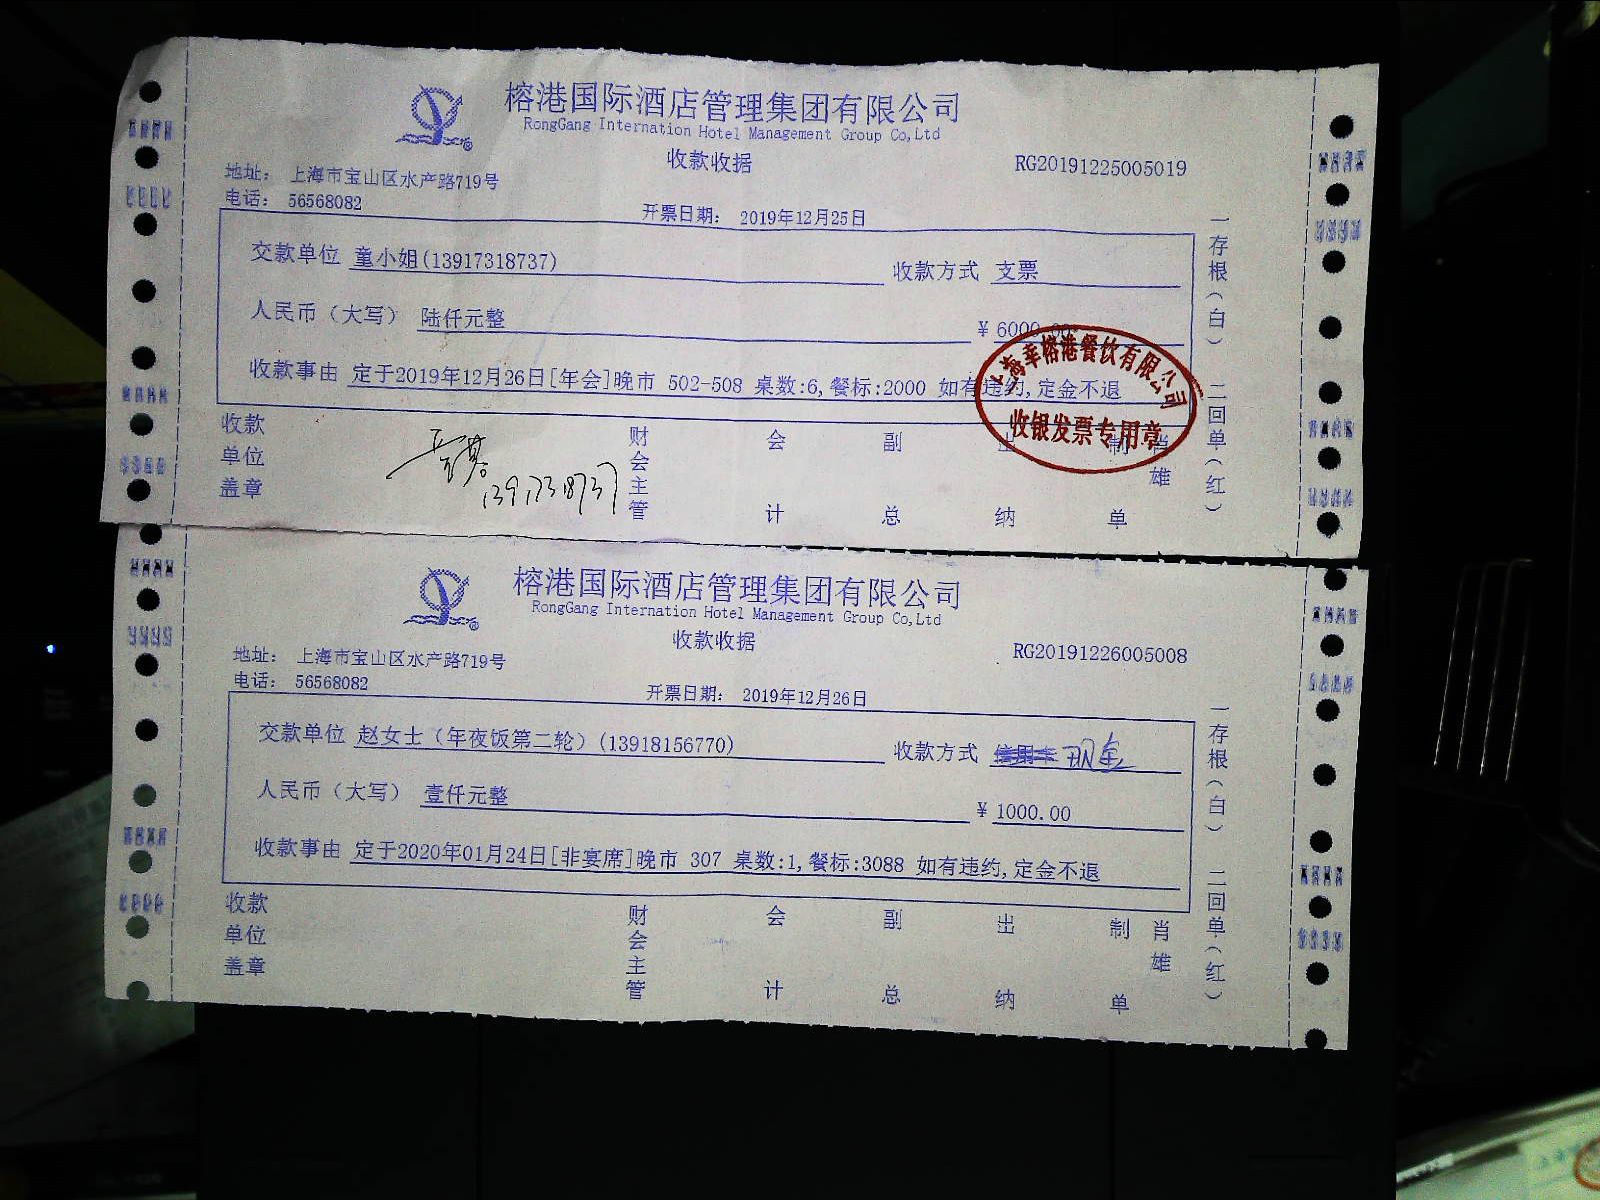 榕港国际酒店管理集团有限公司
RongGang Internation Hotel Management Group Co,Ltd
收款收据
RG20191225005019
地址： 上海市宝山区水产路719号
电话： 56568082
开票日期： 2019年12月25日
交款单位 童小姐(13917318737)
收款方式 支票
人民币（大写） 陆仟元整
￥ 6000.00
收款事由 定于2019年12月26日[年会]晚市 502-508 桌数:6,餐标:2000 如有违约,定金不退
上海幸榕港餐饮有限公司
收银发票专用章
收款单位盖章
13917318737
财会主管
会计
副总
出纳
制单
肖雄
一存根(白) 二回单(红)
榕港国际酒店管理集团有限公司
RongGang Internation Hotel Management Group Co,Ltd
收款收据
RG20191226005008
地址： 上海市宝山区水产路719号
电话： 56568082
开票日期： 2019年12月26日
交款单位 赵女士（年夜饭第二轮）(13918156770)
收款方式 信用卡 现金
人民币（大写） 壹仟元整
￥ 1000.00
收款事由 定于2020年01月24日[非宴席]晚市 307 桌数:1,餐标:3088 如有违约,定金不退
收款单位盖章
财会主管
会计
副总
出纳
制单
肖雄
一存根(白) 二回单(红)